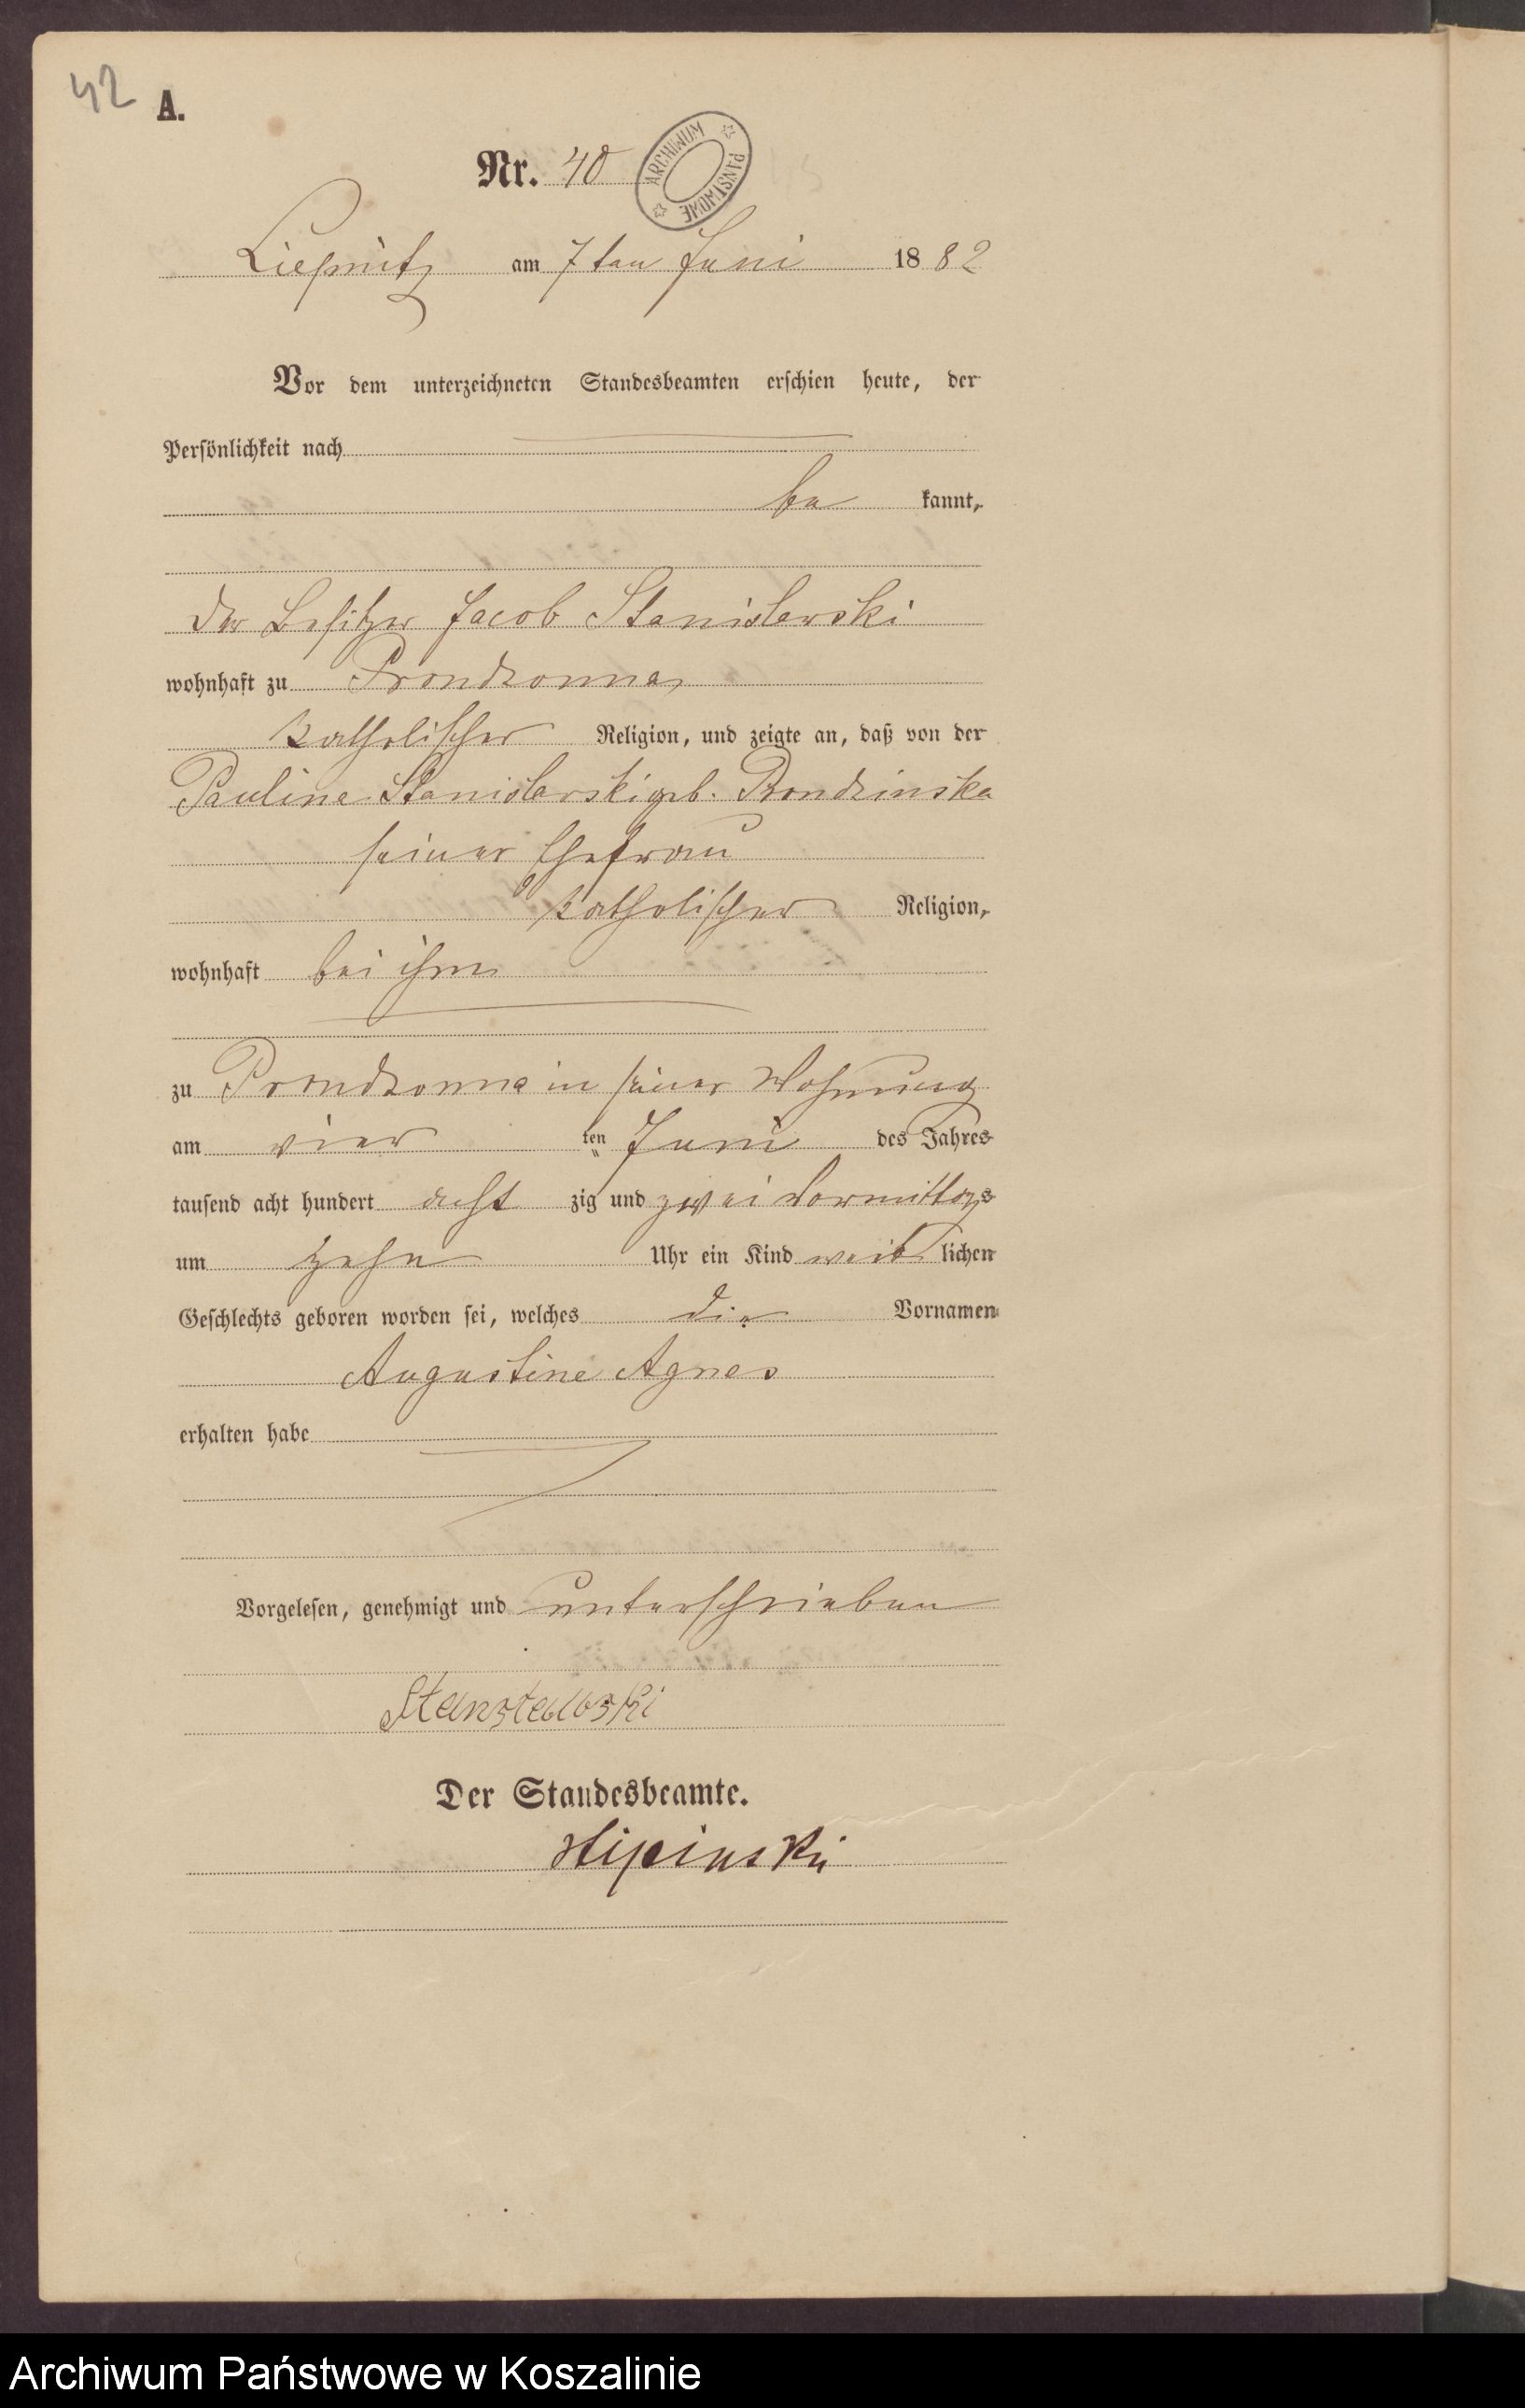 42 A.
ARCHIWUM PAŃSTWOWE
Nr. 40
Liepnitz am 7ten Juni 1882
Vor dem unterzeichneten Standesbeamten erschien heute, der
Persönlichkeit nach
be kannt,
der Besitzer Jacob Stanislawski
wohnhaft zu Prondzonna,
katholischer Religion, und zeigte an, daß von der
Pauline Stanislawski geb. Prondzinska
seiner Ehefrau
katholischer Religion,
wohnhaft bei ihm
zu Prondzonna in seiner Wohnung
am vier ten Juni des Jahres
tausend acht hundert acht zig und zwei Vormittags
um zehn Uhr ein Kind weib lichen
Geschlechts geboren worden sei, welches die Vornamen
Augustine Agnes
erhalten habe
Vorgelesen, genehmigt und unterschrieben
Der Standesbeamte.
Archiwum Państwowe w Koszalinie